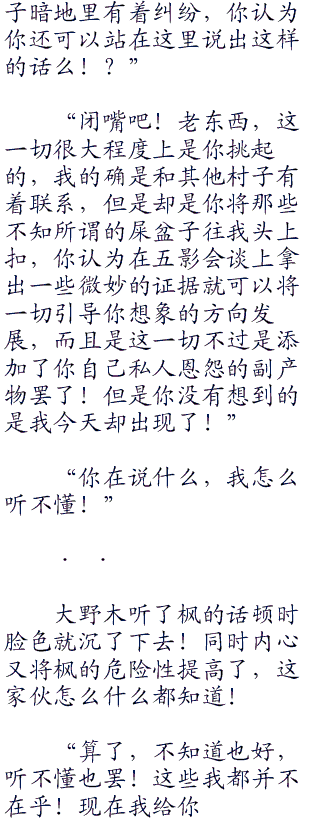 子暗地里有着纠纷，你认为
你还可以站在这里说出这样
的话么！？”
“闭嘴吧！老东西，这
一切很大程度上是你挑起
的，我的确是和其他村子有
着联系，但是却是你将那些
不知所谓的屎盆子往我头上
扣，你认为在五影会谈上拿
出一些微妙的证据就可以将
一切引导你想象的方向发
展，而且是这一切不过是添
加了你自己私人恩怨的副产
物罢了！但是你没有想到的
是我今天却出现了！”
“你在说什么，我怎么
听不懂！”
．．
大野木听了枫的话顿时
脸色就沉了下去！同时内心
又将枫的危险性提高了，这
家伙怎么什么都知道！
“算了，不知道也好，
听不懂也罢！这些我都并不
在乎！现在我给你